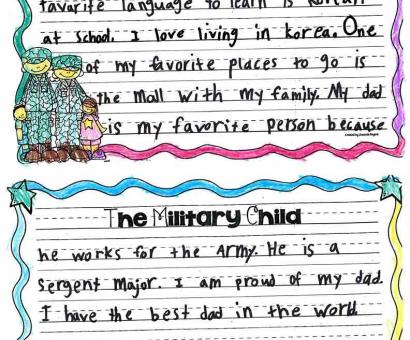 favarite language to learn is Korean
at school. I love living in korea. One
of my favorite places to go is
the mall with my family. My dad
is my favorite person because
The Military Child
he works for the Army. He is a
Sergent Major. I am proud of my dad.
I have the best dad in the world.